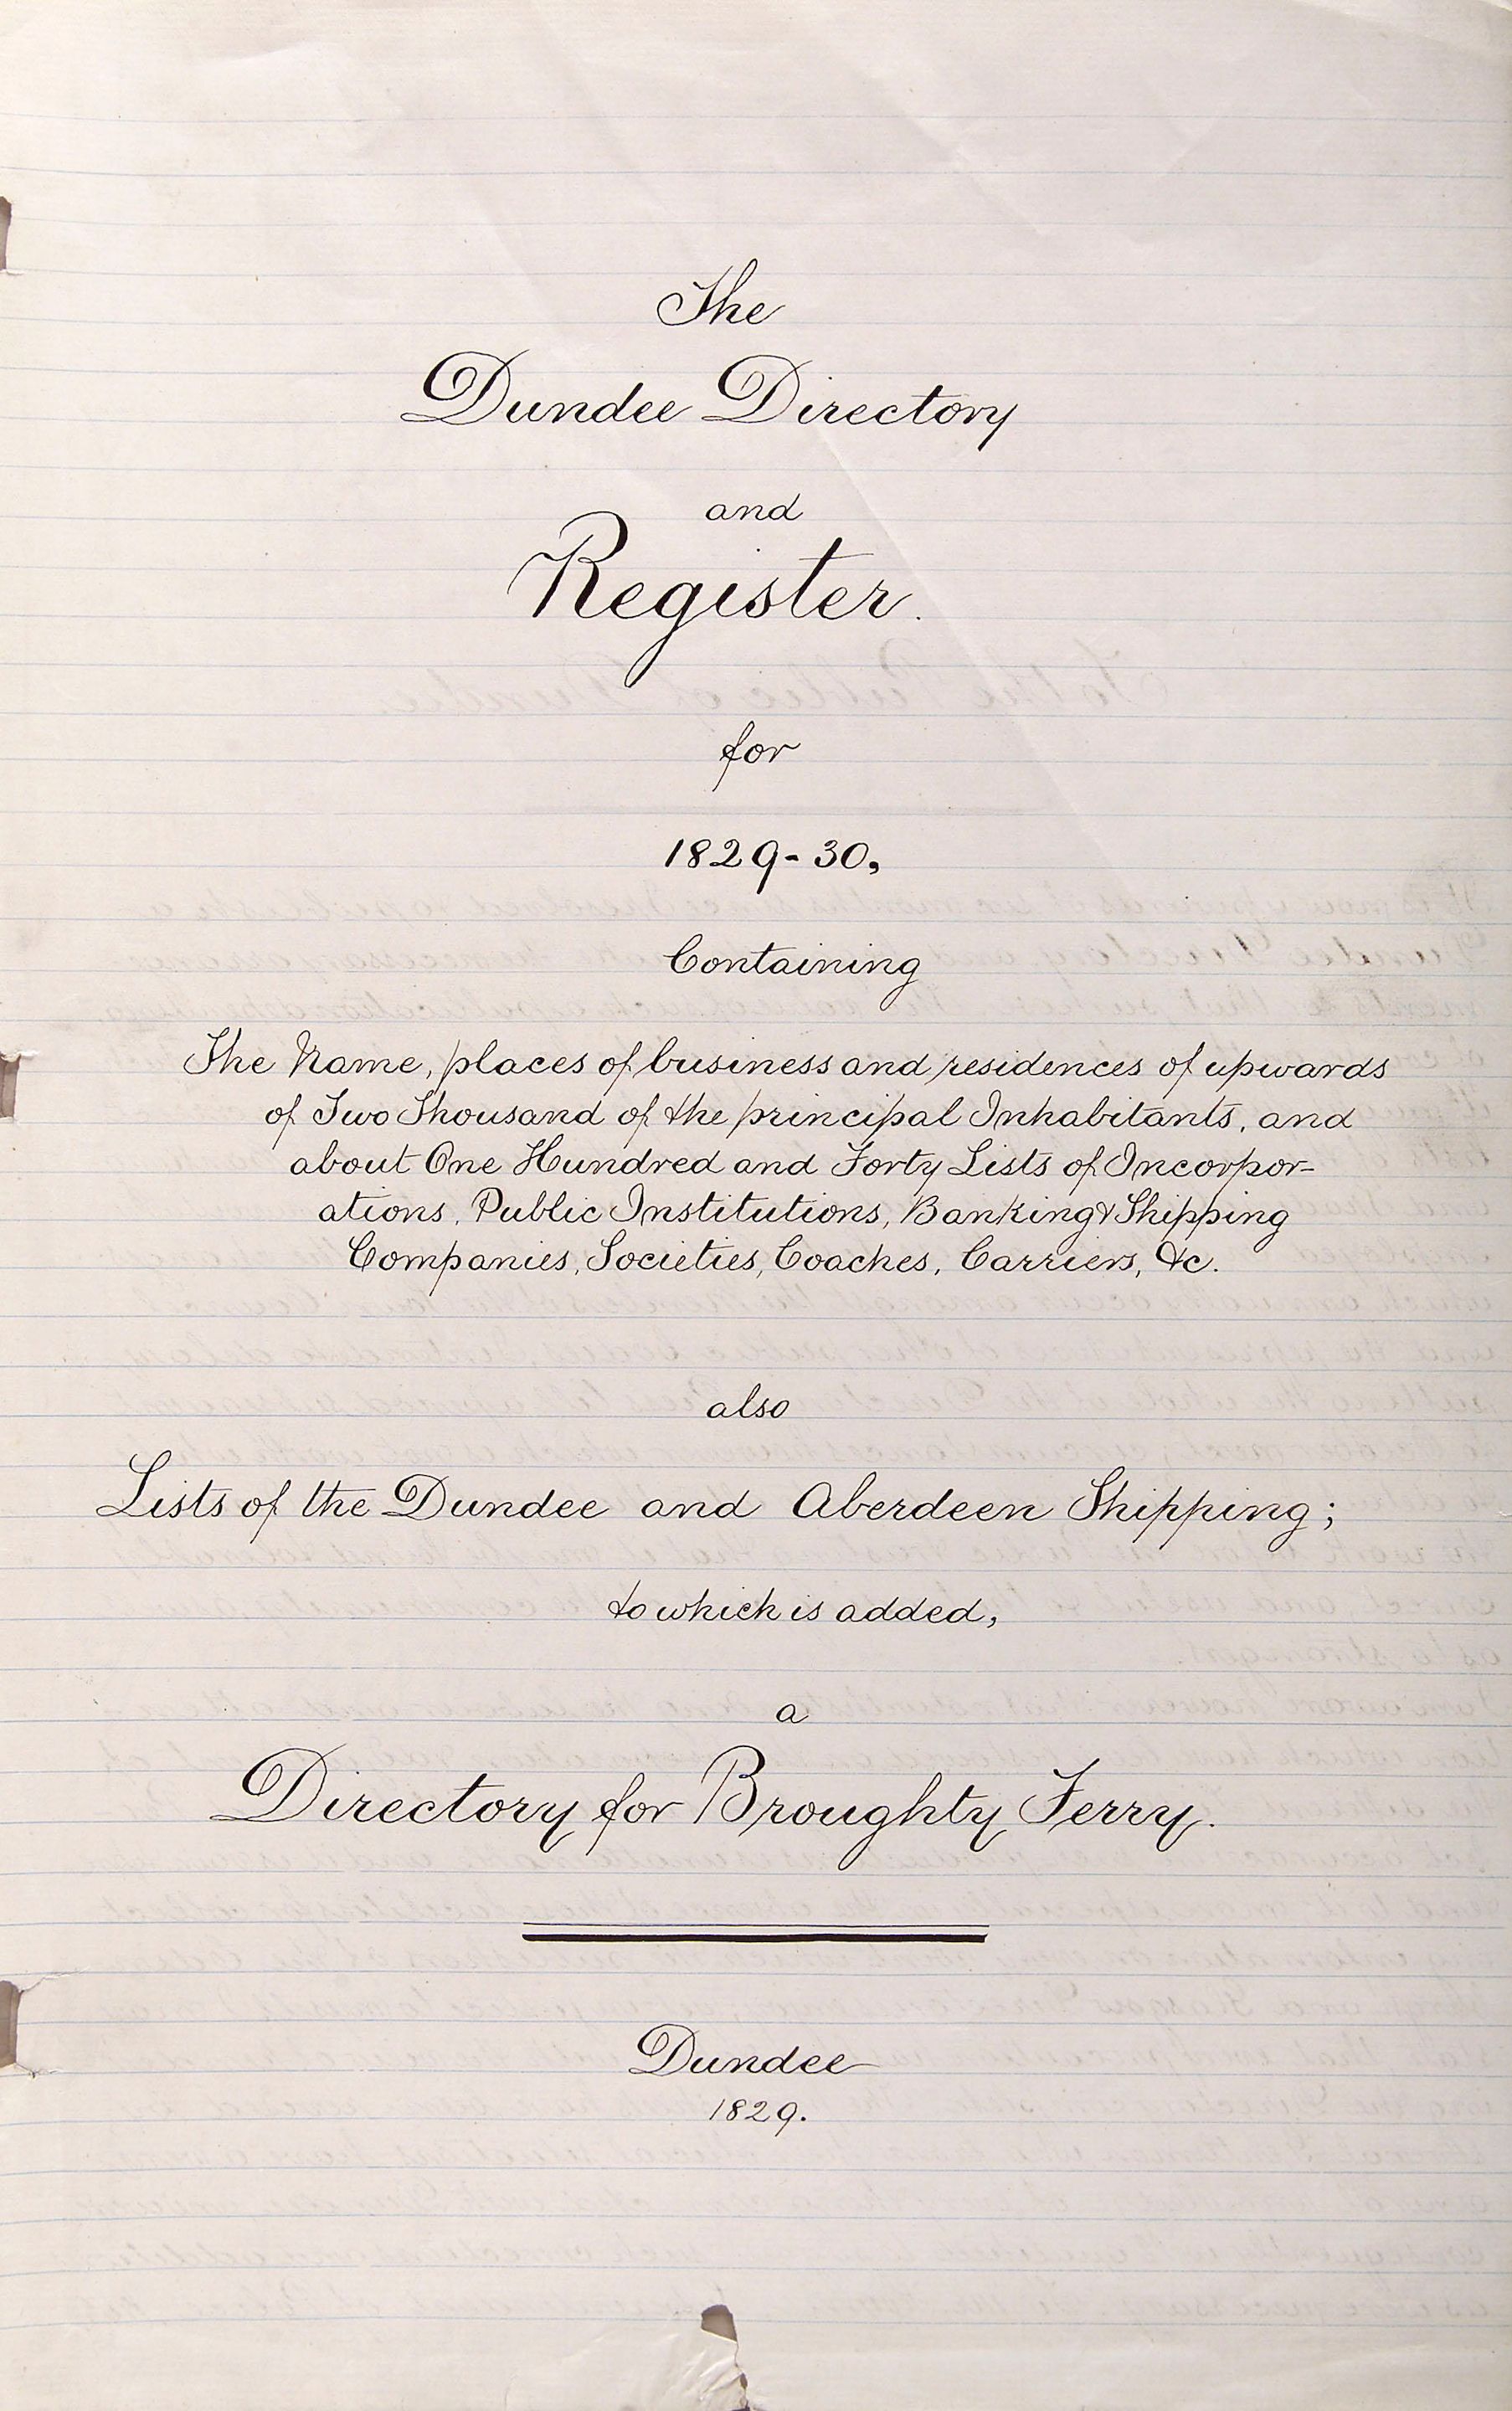 The
Dundee Directory
and
Register.
for
1829-30,
Containing
The Name, places of business and residences of upwards
of Two Thousand of the principal Inhabitants, and
about One Hundred and Forty Lists of Incorpor-
ations, Public Institutions, Banking & Shipping
Companies, Societies, Coaches, Carriers, &c.
also
Lists of the Dundee and Aberdeen Shipping;
to which is added,
a
Directory for Broughty Ferry.
Dundee
1829.